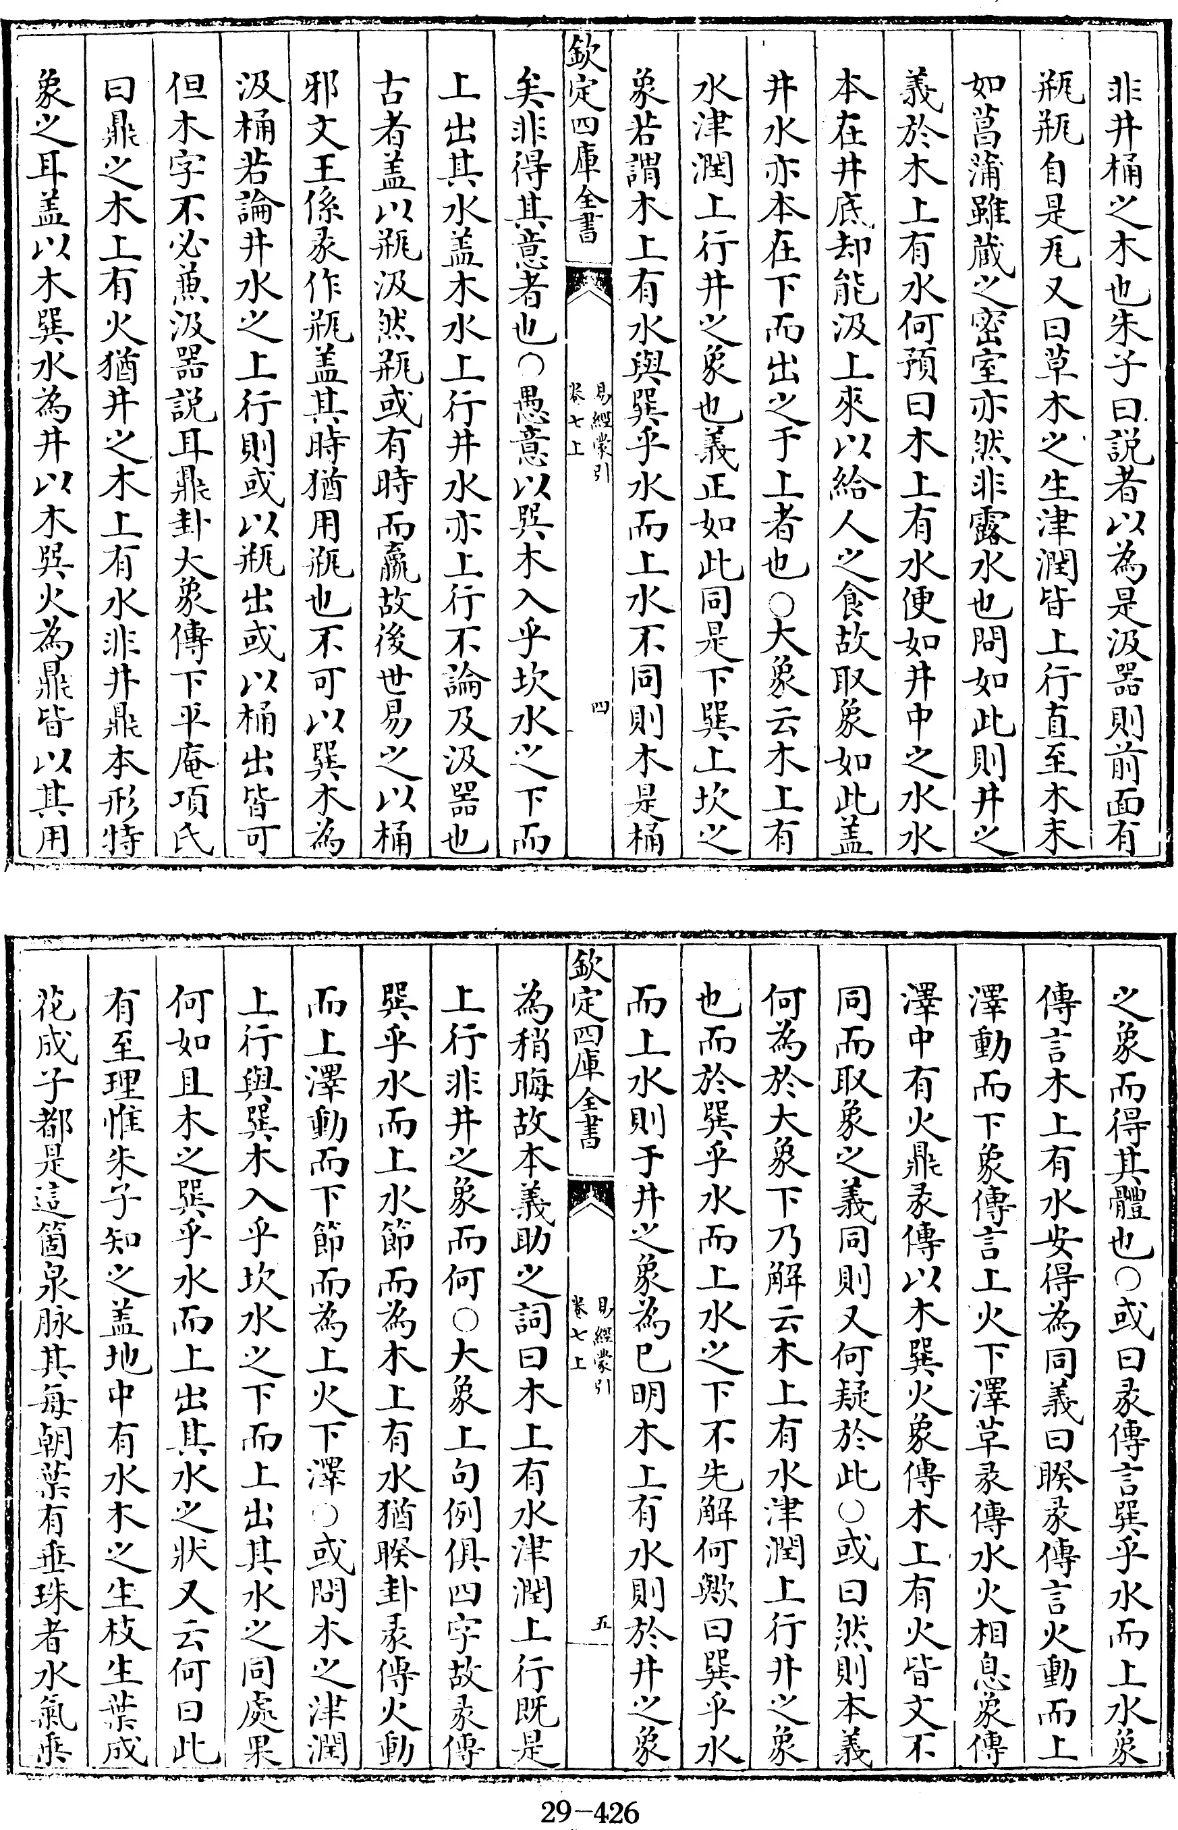 非井桶之木也朱子曰説者以為是汲器則前面有
瓶瓶自是瓦又曰草木之生津潤皆上行直至木末
如菖蒲雖蔵之宻室亦然非露水也問如此則井之
義於木上有水何預曰木上有水便如井中之水水
本在井底却能汲上來以給人之食故取象如此盖
井水亦本在下而出之于上者也○大象云木上有
水津潤上行井之象也義正如此同是下巽上坎之
象若謂木上有水與巽乎水而上水不同則木是桶
欽定四庫全書
易經蒙引
卷七上
四
矣非得其意者也○愚意以巽木入乎坎水之下而
上出其水盖木水上行井水亦上行不論及汲器也
古者盖以瓶汲然瓶或有時而羸故後世易之以桶
邪文王係彖作瓶盖其時猶用瓶也不可以巽木為
汲桶若論井水之上行則或以瓶出或以桶出皆可
但木字不必兼汲器説耳鼎卦大象傳下平庵項氏
曰鼎之木上有火猶井之木上有水非井鼎本形特
象之耳盖以木巽水為井以木巽火為鼎皆以其用
之象而得其體也○或曰彖傳言巽乎水而上水象
傳言木上有水安得為同義曰睽彖傳言火動而上
澤動而下象傳言上火下澤革彖傳水火相息象傳
澤中有火鼎彖傳以木巽火象傳木上有火皆文不
同而取象之義同則又何疑於此○或曰然則本義
何為於大象下乃解云木上有水津潤上行井之象
也而於巽乎水而上水之下不先解何歟曰巽乎水
而上水則于井之象為已明木上有水則於井之象
欽定四庫全書
易經蒙引
卷七上
五
為稍晦故本義助之詞曰木上有水津潤上行既是
上行非井之象而何○大象上句例俱四字故彖傳
巽乎水而上水節而為木上有水猶睽卦彖傳火動
而上澤動而下節而為上火下澤○或問木之津潤
上行與巽木入乎坎水之下而上出其水之同處果
何如且木之巽乎水而上出其水之狀又云何曰此
有至理惟朱子知之盖地中有水木之生枝生葉成
花成子都是這箇泉脉其每朝葉有垂珠者水氣乘
29-426